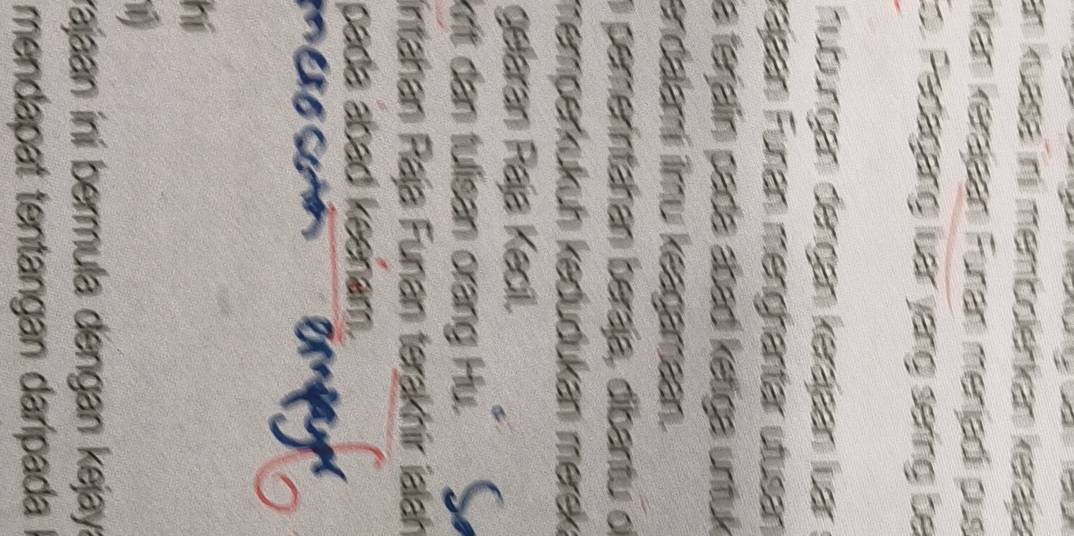 an kuasa ini membolehkan keraja
kan Kerajaan Funan menjadi pus
Pedagang luar yang sering be
hubungan dengan kerajaan luar
rajaan Funan menghantar utusan
a terjalin pada abad ketiga untuk
endalami ilmu keagamaan.
pemerintahan beraja, dibantu ol
memperkukuh kedudukan merek
gelaran Raja Kecil.
krit dan tulisan orang Hu.
intahan Raja Funan terakhir ialah
pada abad keenam.
hi
rajaan ini bermula dengan kejay
mendapat tentangan daripada